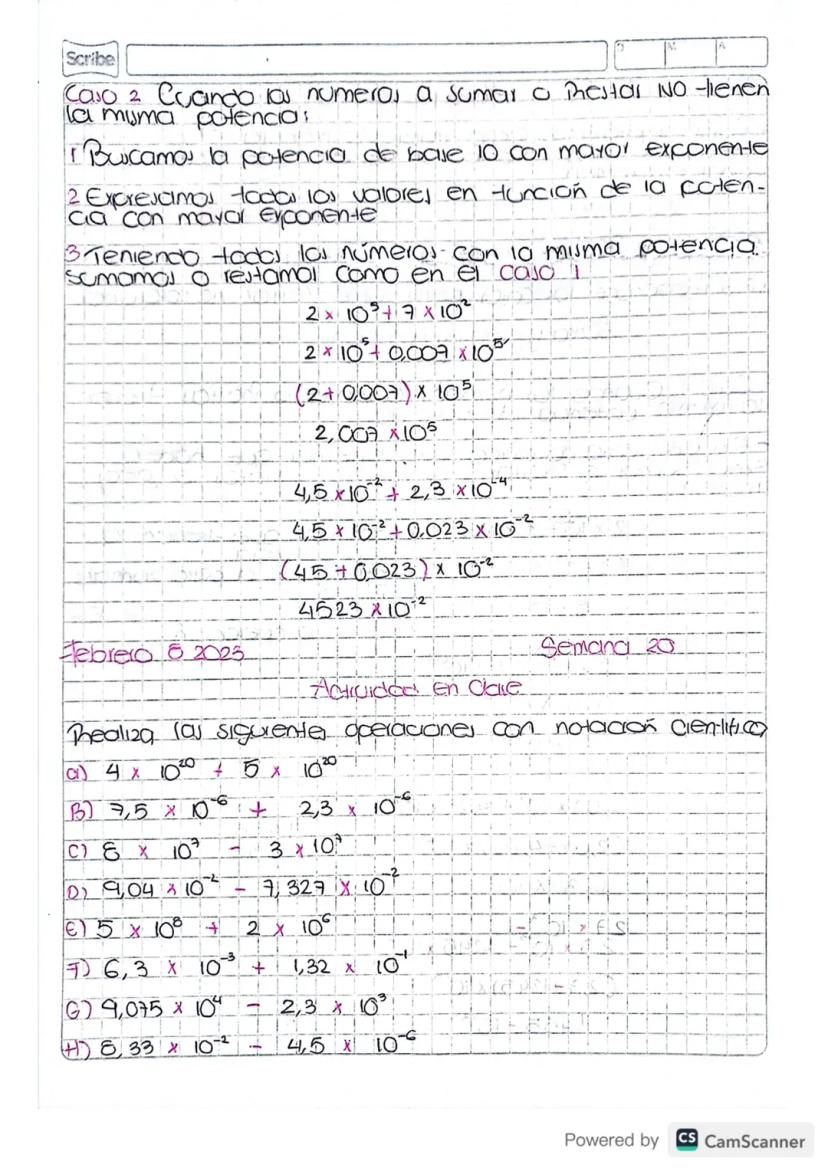 Scribe
D M A
Caso 2 Cuando los numeros a sumar o Restar NO tienen
la misma potencia:
1 Buscamos la potencia de base 10 con mayor exponente
2 Expresamos todos los valores en función de la poten-
cia con mayor exponente
3 Teniendo todos los números con la misma potencia.
sumamos o restamos como en el caso 1
2 × 10⁵ + 7 × 10²
2 × 10⁵ + 0,007 × 10⁵
(2 + 0,007) × 10⁵
2,007 × 10⁵
4,5 × 10⁻² + 2,3 × 10⁻⁴
4,5 × 10⁻² + 0,023 × 10⁻²
(4,5 + 0,023) × 10⁻²
4523 × 10⁻²
Febrero 8 2023 Semana 20
Actividad en Clase
Realiza las siguiente, operaciones con notación cientifica
a) 4 × 10²⁰ + 5 × 10²⁰
B) 7,5 × 10⁻⁶ + 2,3 × 10⁻⁶
C) 8 × 10⁷ - 3 × 10⁷
D) 9,04 × 10⁻² - 7,327 × 10⁻²
E) 5 × 10⁸ + 2 × 10⁶
F) 6,3 × 10⁻³ + 1,32 × 10⁻¹
G) 9,075 × 10⁴ - 2,3 × 10³
H) 8,33 × 10⁻² - 4,5 × 10⁻⁶
Powered by CS CamScanner